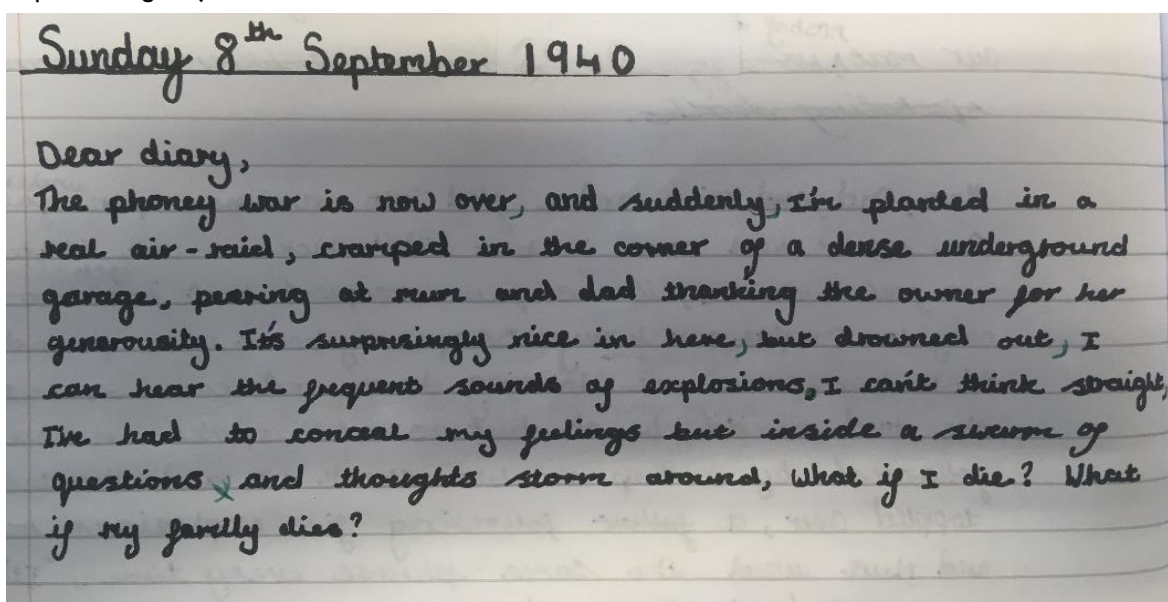 Sunday 8th September 1940
Dear diary,
The phoney war is now over, and suddenly, I'm planted in a
real air-raid, cramped in the corner of a dense underground
garage, peering at mum and dad thanking the owner for her
generousity. It's surprisingly nice in here, but drowned out, I
can hear the frequent sounds of explosions. I can't think straight,
I've had to conceal my feelings but inside a swurm of
questions and thoughts storm around, What if I die? What
if my family dies?